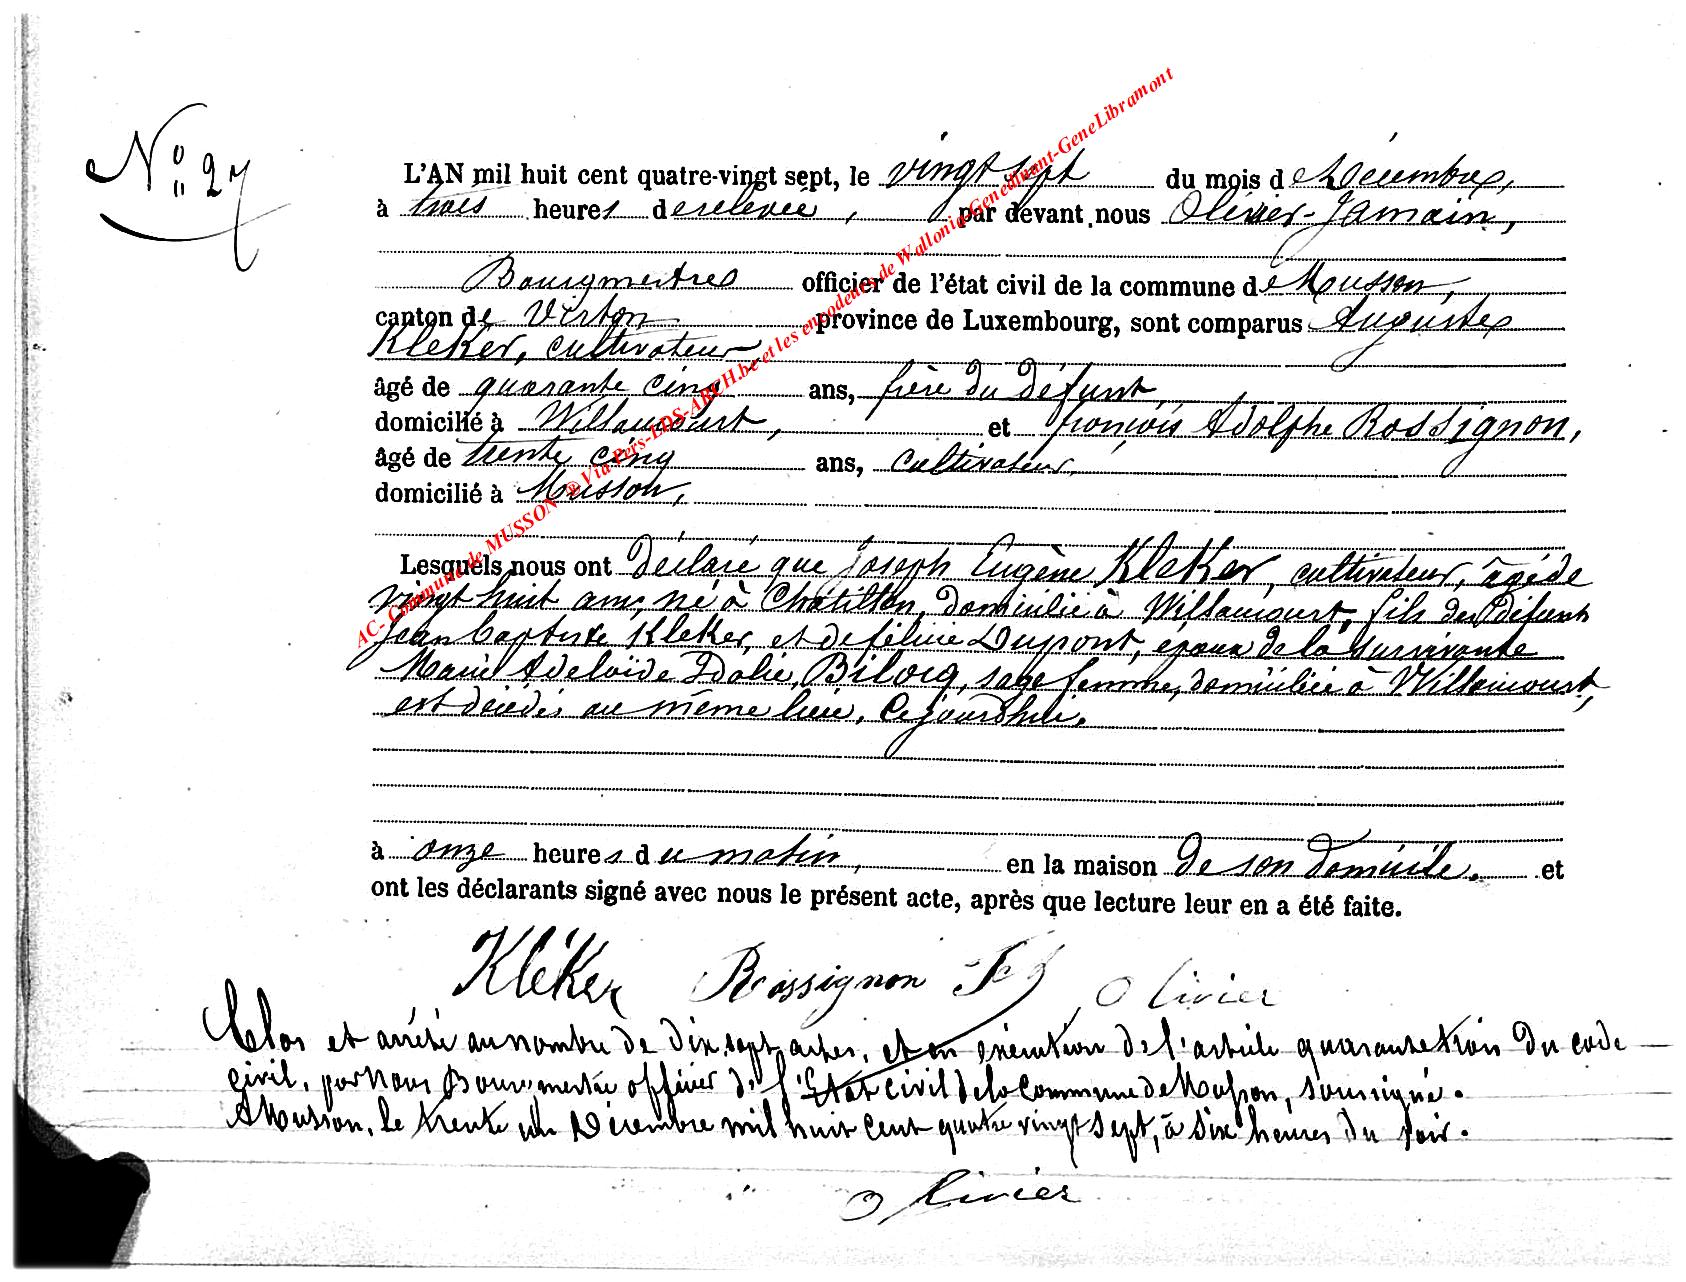 N° 27
L'AN mil huit cent quatre-vingt sept, le vingt sept du mois de Décembre,
à trois heures de relevée, par devant nous Olivier-Jamain,
Bourgmestre officier de l'état civil de la commune de Musson,
canton de Virton province de Luxembourg, sont comparus Auguste
Kléker, cultivateur,
âgé de quarante cinq ans, frère du défunt,
domicilié à Willancourt, et françois Adolphe Rossignon,
âgé de trente cinq ans, cultivateur,
domicilié à Musson,
Lesquels nous ont déclaré que Joseph Eugène Kleker, cultivateur, âgé de
vingt huit ans, né à Chatillon, domicilié à Willancourt, fils de défunt
Jean baptiste Kleker, et de félicie Dupont, époux de la survivante
Marie Adelaïde Idalie, Bilocq, sage femme, domiciliée à Willancourt,
est décédé au même lieu, cejourd'hui,
à onze heures du matin, en la maison de son domicile. et
ont les déclarants signé avec nous le présent acte, après que lecture leur en a été faite.
Kléker Rossignon Olivier
Clos et arrêté au nombre de dix sept actes, et en exécution de l'article quarante trois du code
civil, par Nous Bourgmestre officier de l'Etat civil de la Commune de Musson, soussigné.
A Musson, le trente un Décembre mil huit cent quatre vingt sept, à six heures du soir.
Olivier
AC- Commune de MUSSON ® Via Pers-LDS-ARCH.be et les encodeurs de Wallonia-Genedinant-GeneLibramont